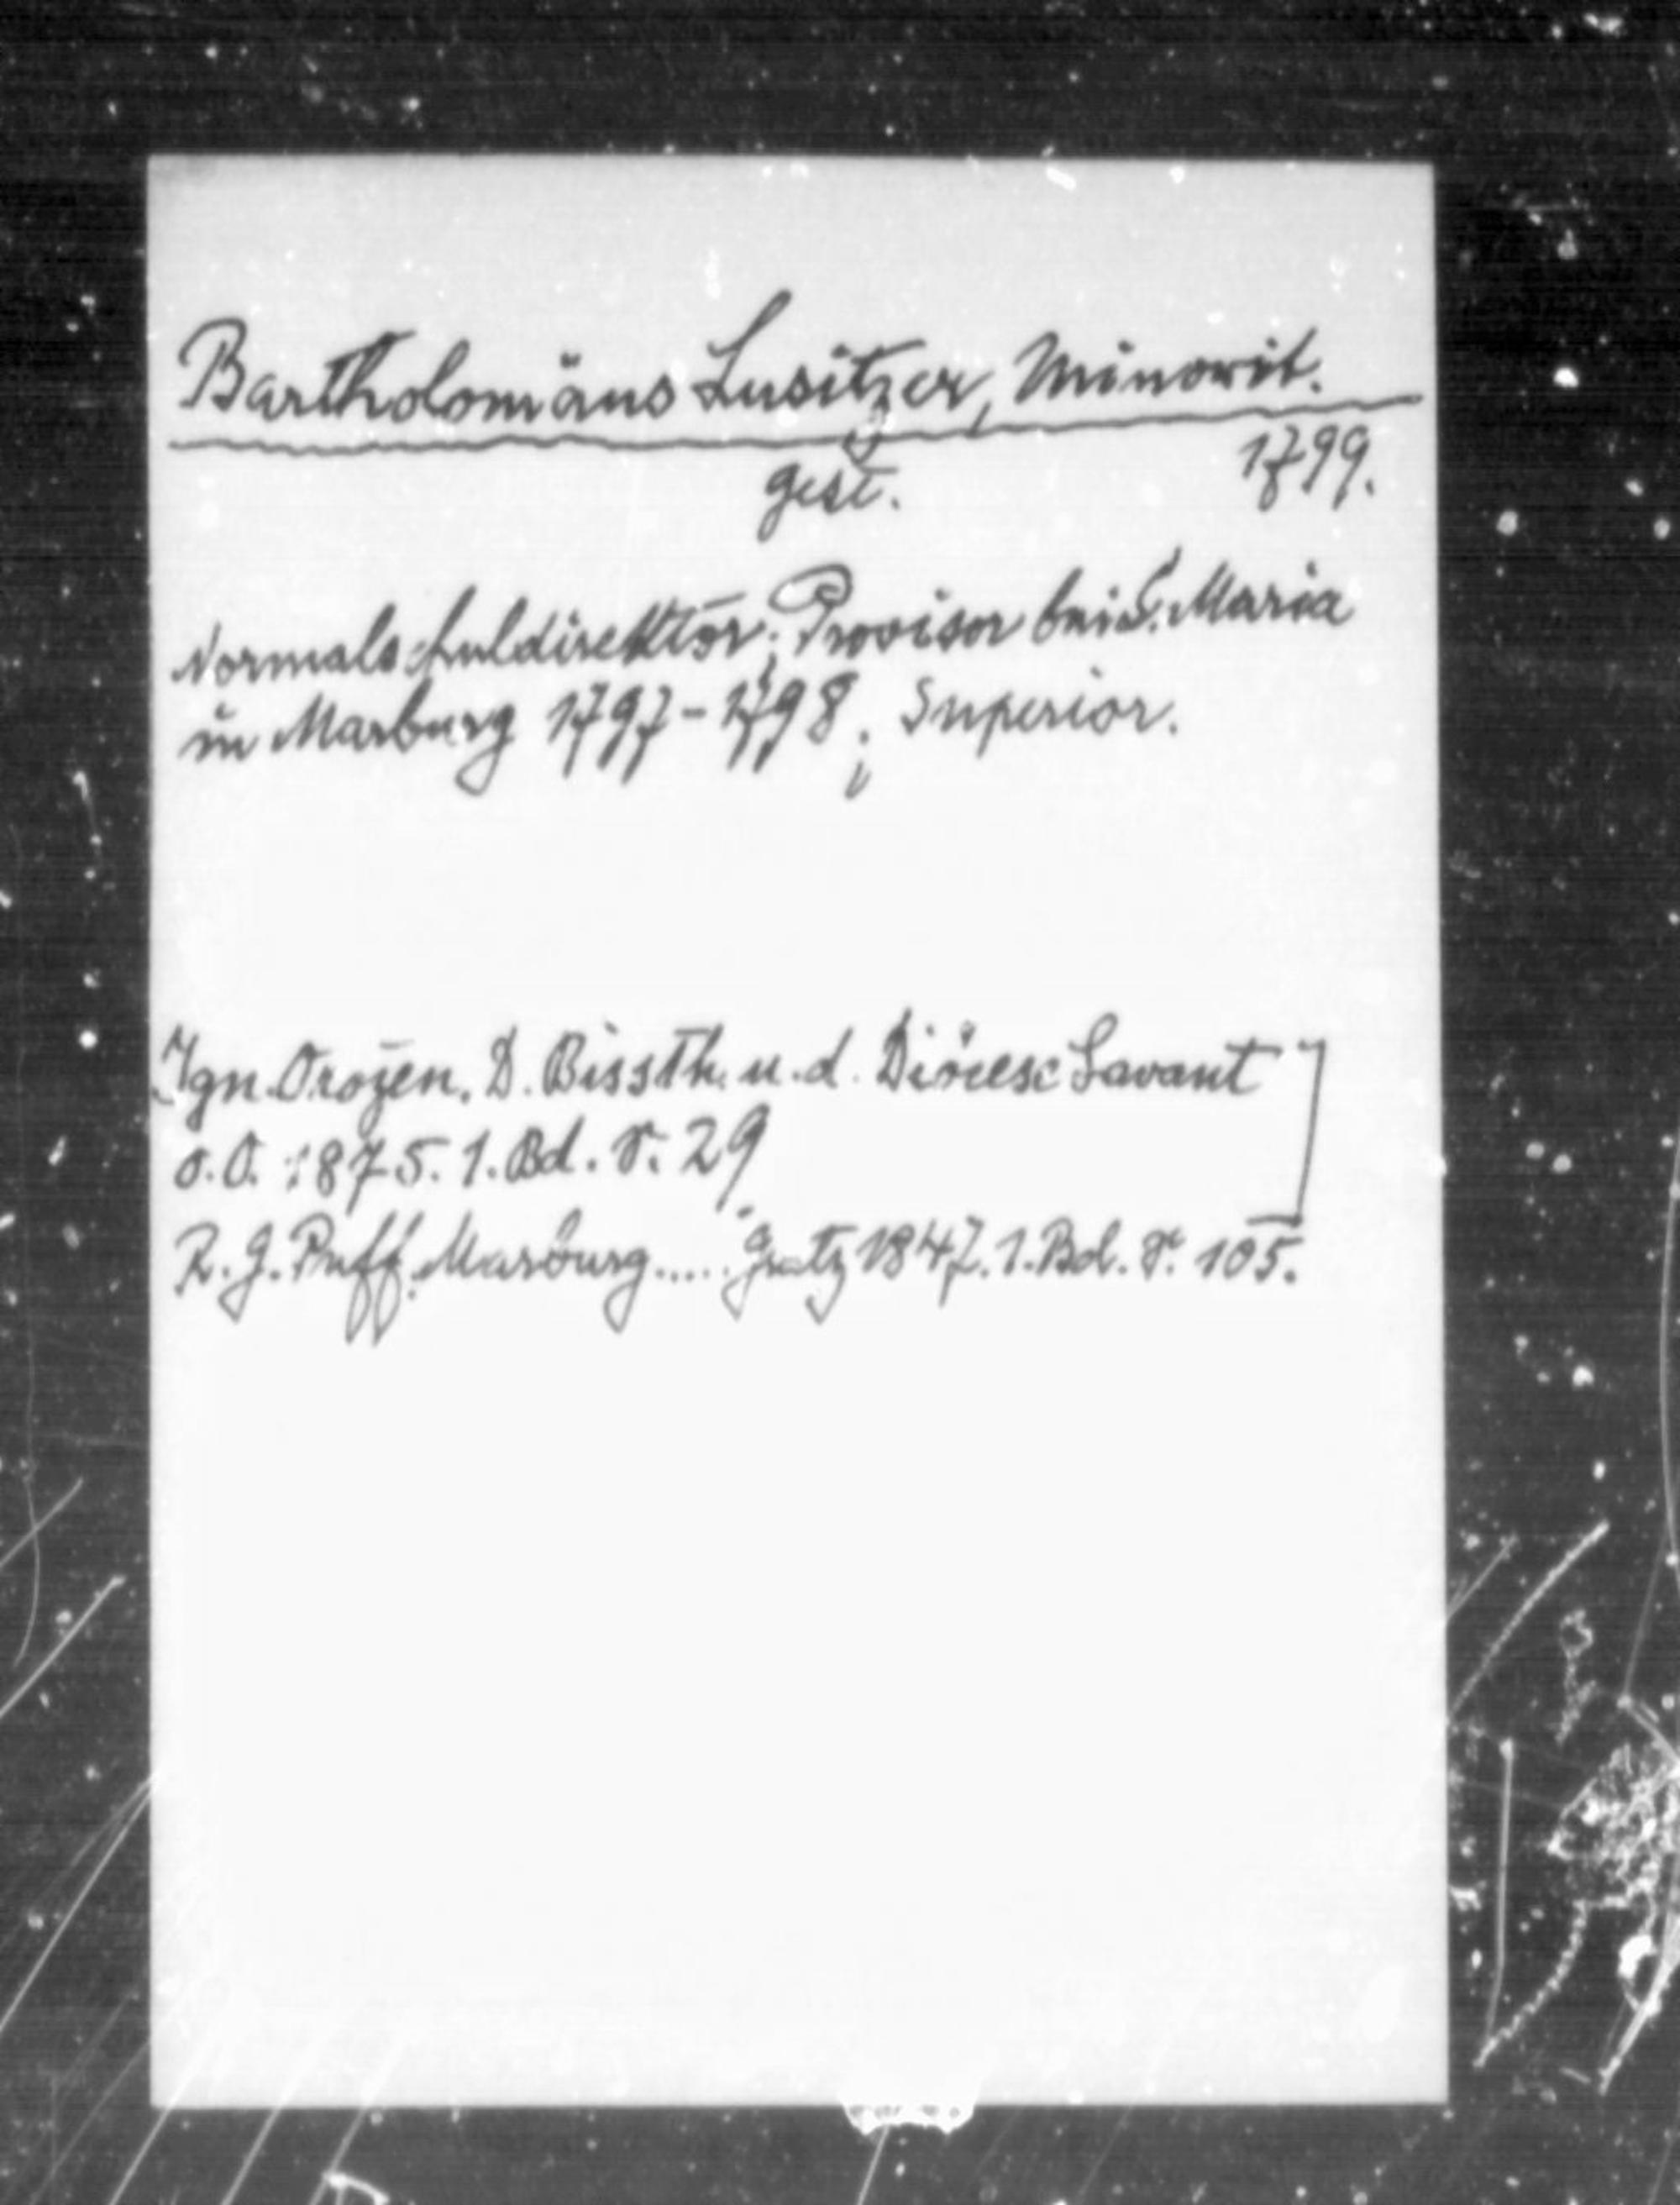 Bartholomäus Lusitzer, Minorit.
gest. 1799.
Normalschuldirektor; Provisor bei S. Maria
in Marburg 1797-1798; Superior.
Ign. Orožen. D. Bissth. u. d. Diöcese Lavant
o.O. 1875. 1. Bd. S. 29
R. G. Puff. Marburg..... Gratz 1847. 1. Bd. S. 105.